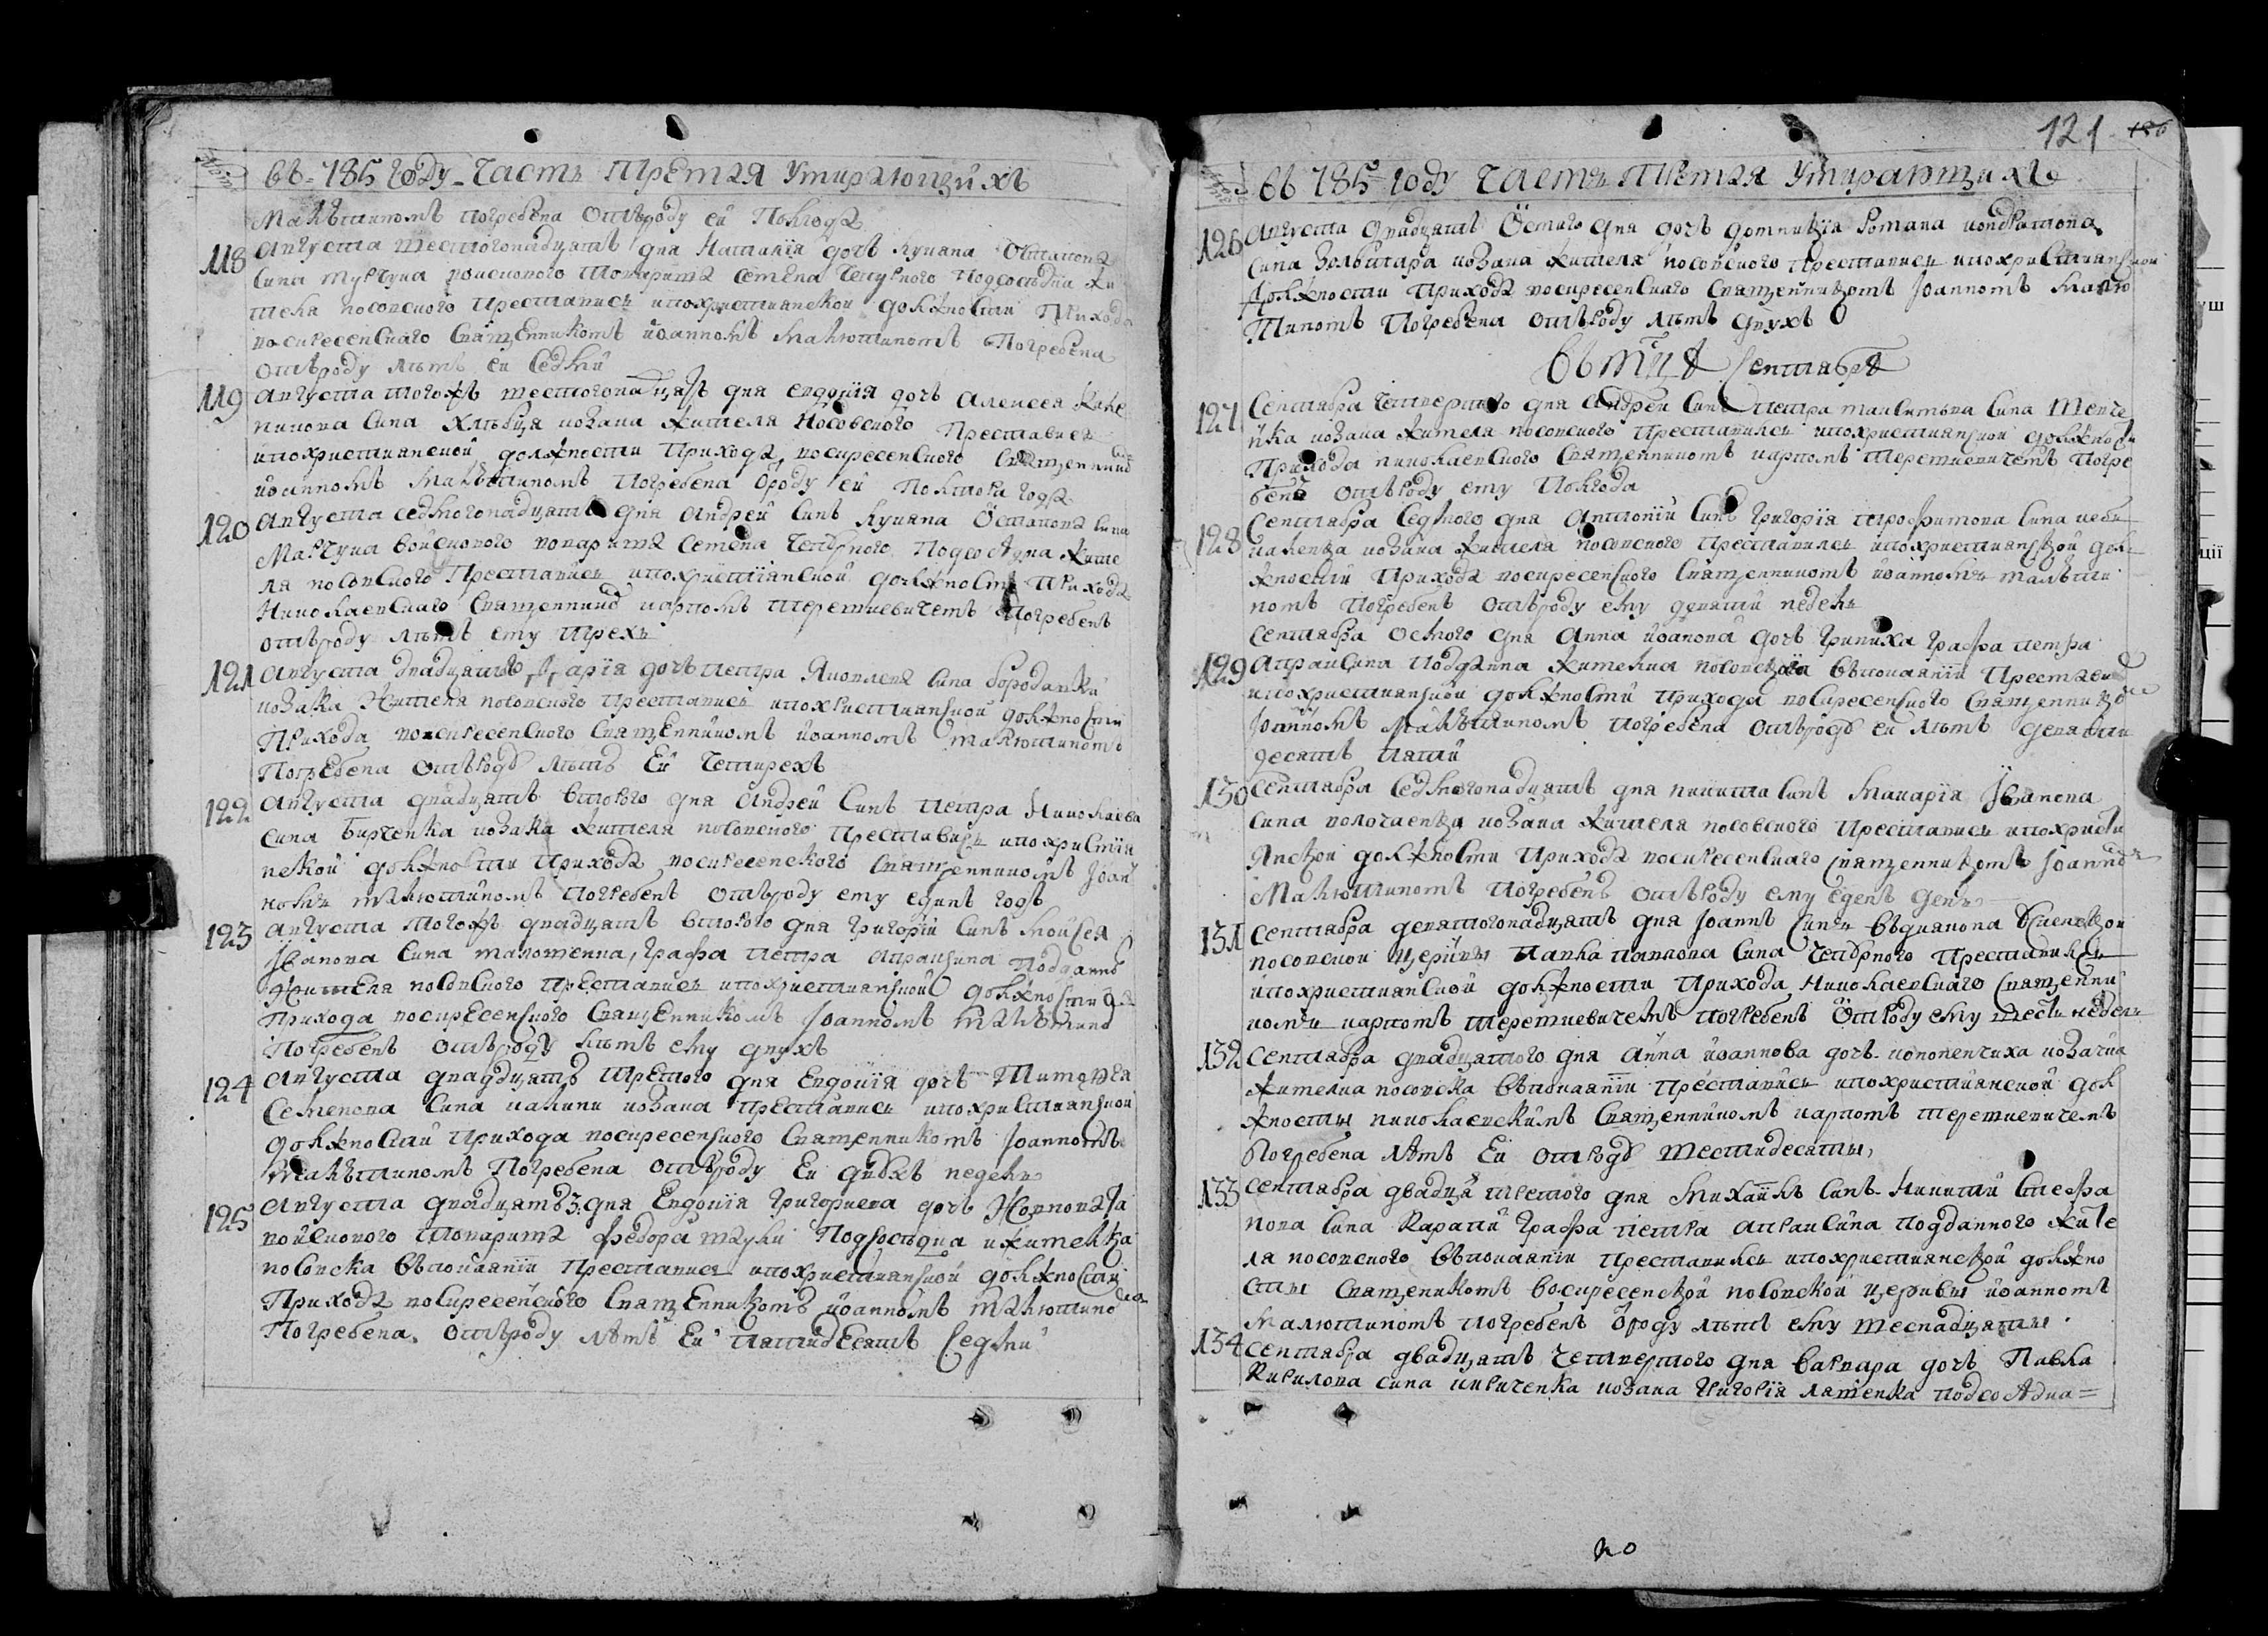 въ 785 году Часть третяя умирающихъ
Малюшиномъ погребена отъроду ей полгода
118 Августа шестогонадцять дня Наталія дочь Куцана Остапова
сина войскового товариша Семена Чепурного подсосѣдка жи
теля носовского преставись похристиянской должности прихода
воскресенского священникомъ Іоанномъ Малюшиномъ погребена
отъроду лѣтъ ей седмй
119 Августа тогожъ шестогонадцять дня Евдокія дочь Алексея
сина Хлѣбця козака жителя носовского преставись
похристиянской должности прихода воскресенского священник
Іоанномъ Малюшиномъ погребена ѿроду ей полтора года
120 Августа седмогонадцять дня Андрей синъ Куцана Остапова сина
войскового товариша Семена Чепурного подсосѣдка жите
ля носовского преставись похристиянской должности прихода
Николаевского священник Карпомъ Терентиевичемъ погребенъ
отъроду лѣтъ ему трехъ
121 Августа двадцятого Марія дочь Петра Яковлева сина Бородавки
козака жителя носовского преставись похристиянской должности
прихода воскресенского священникомъ Іоанномъ Малюшиномъ
погребена отъроду лѣтъ ей четирехъ
122 Августа двадцять второго дня Андрей синъ Петра Николаева
сина Бирченка козака жителя носовского преставись похристия
нской должности прихода воскресенского священникомъ Іоан
номъ Малюшиномъ погребенъ отъроду ему единъ годъ
123 Августа тогожъ двадцять второго дня Григорій синъ Мойсея
Іванова сина графа Петра Апраксина подданн
жителя носовского преставись похристиянской должности
прихода воскресенского священникомъ Іоанномъ Малюшино
погребенъ отъроду лѣтъ ему двухъ
124 Августа двадцять третого дня Евдокія дочь Тимофея
Семенова сина Калини козака преставись похристиянской
должности прихода воскресенского священникомъ Іоанномъ
Малюшиномъ погребена отъроду ей двохъ недель
125 Августа двадцять 3: дня Евдокія Григориева дочь
войскового товариша Федора подсосѣдка и жителка
носовска въпокаяніи преставися похристиянской должности
прихода воскресенского священникомъ Іоанномъ Малюшино
погребена отъроду лѣтъ ей пятидесятъ седмй
121 186
въ 785 году Часть третяя умирающихъ
126 Августа двадцять осмого дня дочь Домникія Романа Кондратова
сина козака жителя носовского преставись похристиянской
должности прихода воскресенского священникомъ Іоанномъ Малю
шиномъ погребена отъроду лѣтъ двухъ
въ мцѣ Сентябрѣ
127 Сентября четвертого дня Андрей синъ Петра Максимова сина Шевче
нка козака жителя носовского преставилсь похристиянской должности
прихода николаевского священникомъ Карпомъ Терентиевичемъ погре
бенъ отъроду ему полгода
128 Сентября седмого дня Антоній синъ Григорія Трофимова сина
козака жителя носовского преставилсь похристиянской дол
жности прихода воскресенского священникомъ Іоанномъ Малюши
номъ погребенъ отъроду ему девяти недель
129 Сентября осмого дня Анна Іоанова дочь Гриниха графа Петра
Апраксина подданна жителка носовская въпокаяніи престави
похристиянской должности прихода воскресенского священнико
Іоанномъ Малюшиномъ погребена отъроду ей лѣтъ девяти
десятъ пяти
130 Сентября седмогонадцять дня Никита синъ Макарія Іванова
сина козака жителя носовского преставись похристи
янской должности прихода воскресенского священникомъ Іоанно
Малюшиномъ погребенъ отъроду ему еденъ день
131 Сентября девятогонадцять дня Іоаннъ синъ
носовской церкви Павла Павлова сина Чепурного преставилсь
похристиянской должности прихода Николаевского священни
комъ Карпомъ Терентиевичемъ погребенъ ѿроду ему шесть недель
132 Сентября двадцятого дня Анна Іоаннова дочь козачка
жителка носовска въпокаяніи преставись похристиянской дол
жносты николаевскимъ священникомъ Карпомъ Терентиевичемъ
погребена лѣтъ ей отроду шестидесяты,
133 Сентября двадця третого дня Михаилъ синъ Никити Стефа
нова сина графа Петра Апраксина подданного жите
ля носовского въпокаяніи преставилсь похристиянской должно
сты священикомъ воскресенской носовской церквы Іоанномъ
Малюшиномъ погребенъ ѿроду лѣтъ ему шеснадцяты.
134 Сентября двадцять четвертого дня Варвара дочь Павла
Кирилова сина Кириченка козака Григорія Ляшенка подсосѣдка=
но